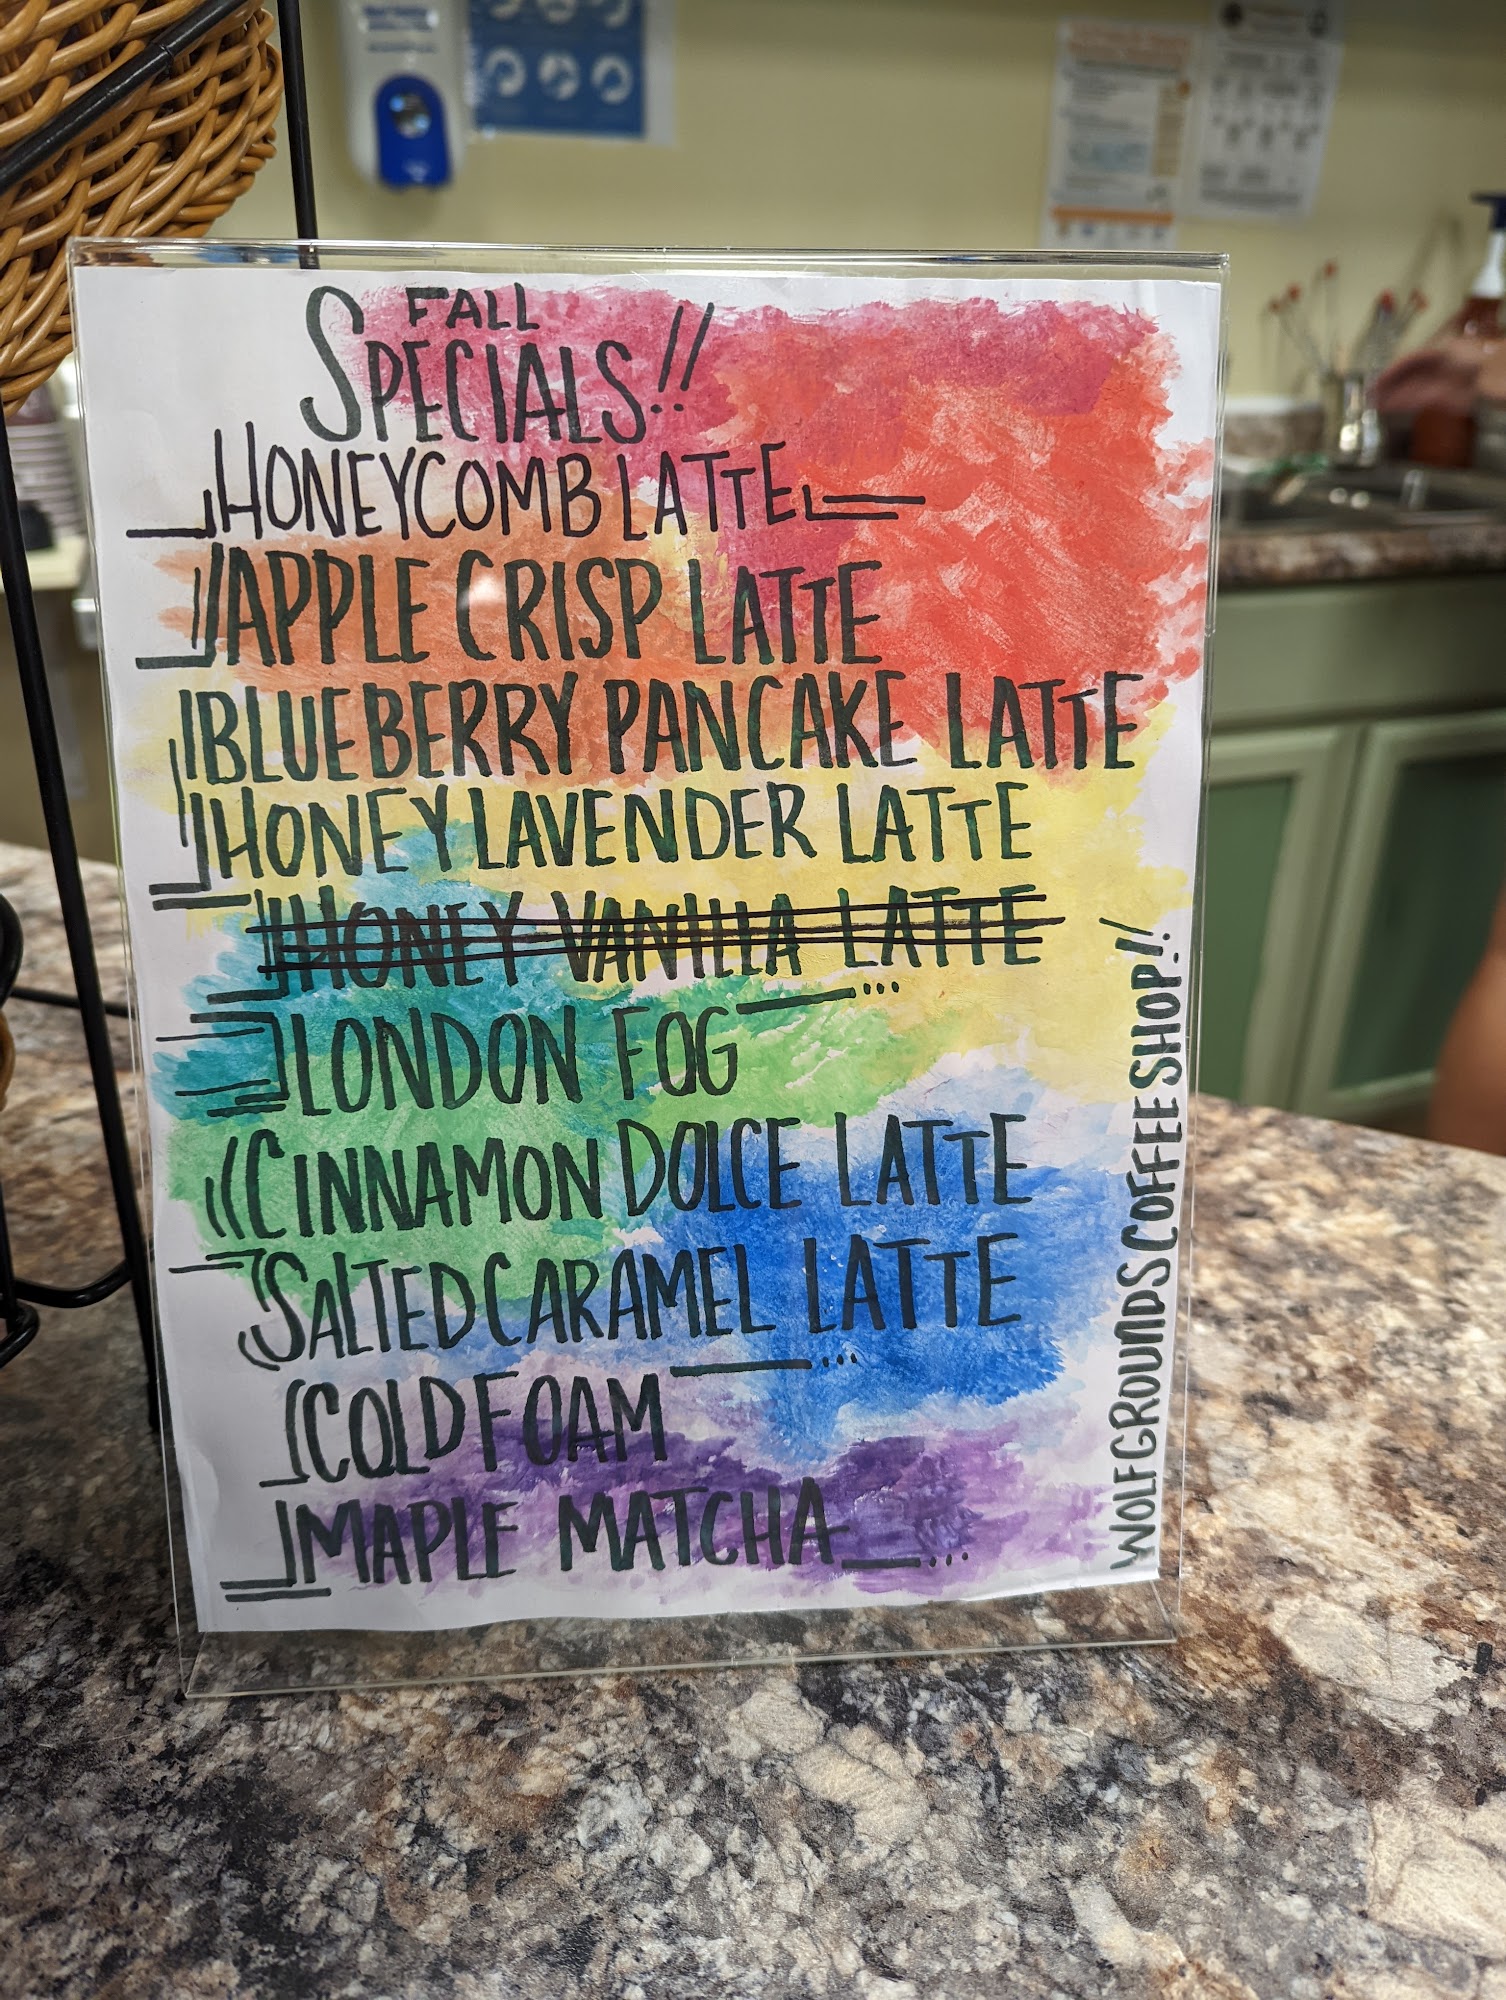 FALL
SPECIALS!!
HONEYCOMB LATTE
APPLE CRISP LATTE
BLUEBERRY PANCAKE LATTE
HONEY LAVENDER LATTE
HONEY VANILLA LATTE
LONDON FOG
CINNAMON DOLCE LATTE
SALTED CARAMEL LATTE
COLD FOAM
MAPLE MATCHA
WOLFGROUNDS COFFEE SHOP!!